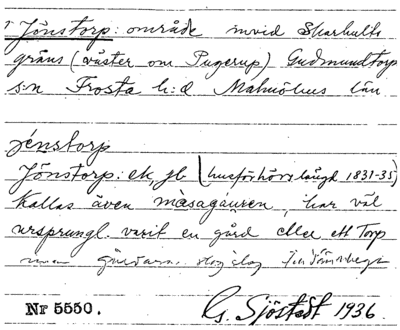 Jönstorp: område invid Skarhults
gräns (väster om Pugerup) Gudmundtorp
s:n Frosta h:d Malmöhus län
jénstorp
Jönstorp: ek, jb (husförhörslängd 1831-35)
Kallas även màsagåuren, har väl
ursprungl. varit en gård eller ett Torp
men
Nr 5550. G. Sjöstedt 1936.